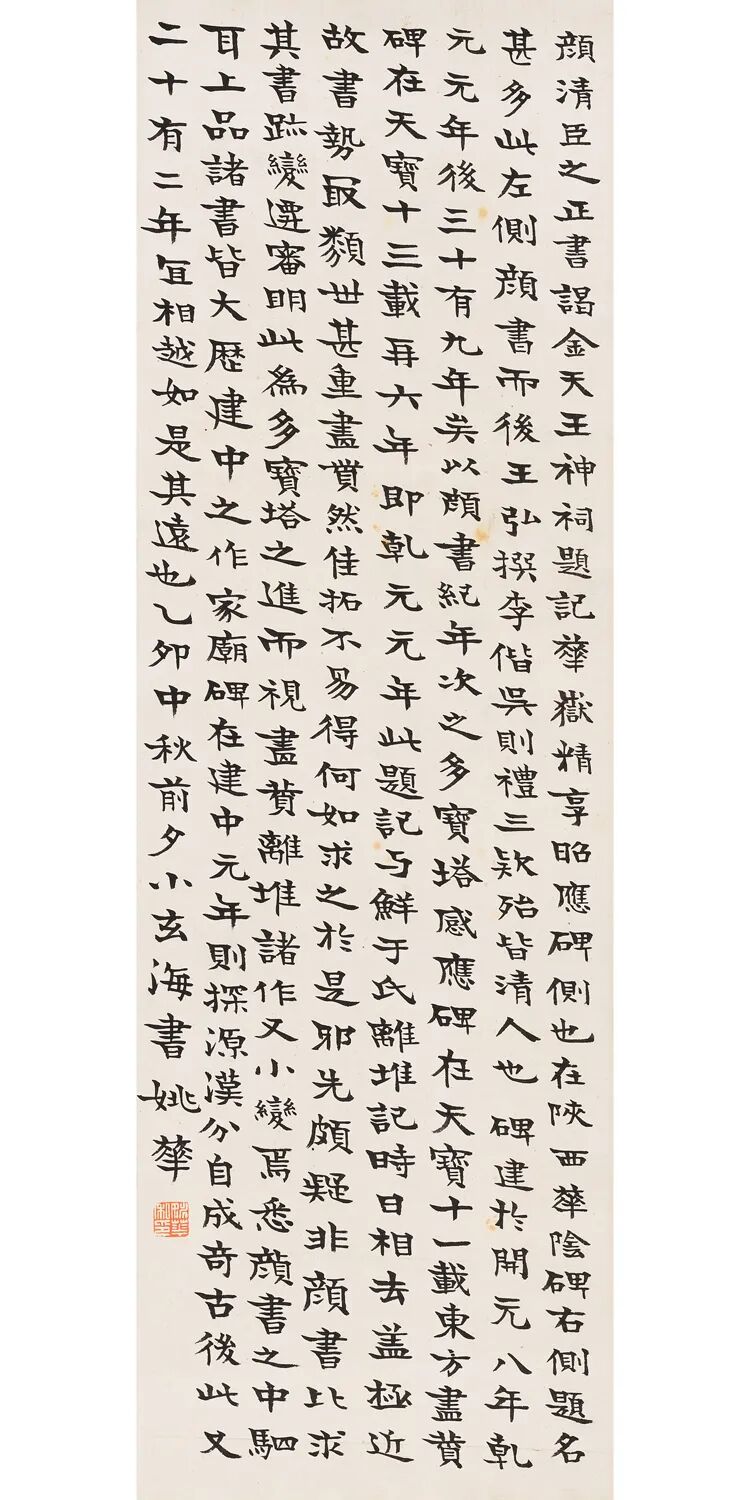 顔清臣之正書謁金天王神祠題記華嶽精享昭應碑側也在陝西華陰碑右側題名
甚多此左側顔書而後王弘撰李偕吳則禮三欵殆皆清人也碑建於開元八年乹
元元年後三十有九年矣以顔書紀年次之多寶塔感應碑在天寶十一載東方畫賛
碑在天寶十三載再六年即乹元元年此題記与鮮于氏離堆記時日相去盖極近
故書勢㝡類世甚重畫賛然佳拓不易得何如求之於是邪先頗疑非顔書比求
其書跡變遷審明此為多寶塔之進而視畫賛離堆諸作又小變焉悉顔書之中駟
耳上品諸書皆大歴建中之作家廟碑在建中元年則探源漢分自成奇古後此又
二十有二年冝相越如是其遠也乙卯中秋前夕小玄海書姚華